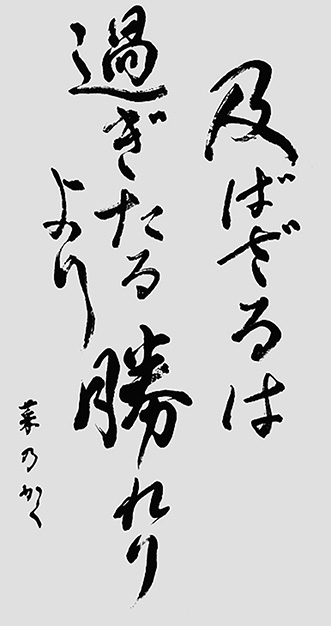 及ばざるは
過ぎたる
より
勝れり
菜乃かく